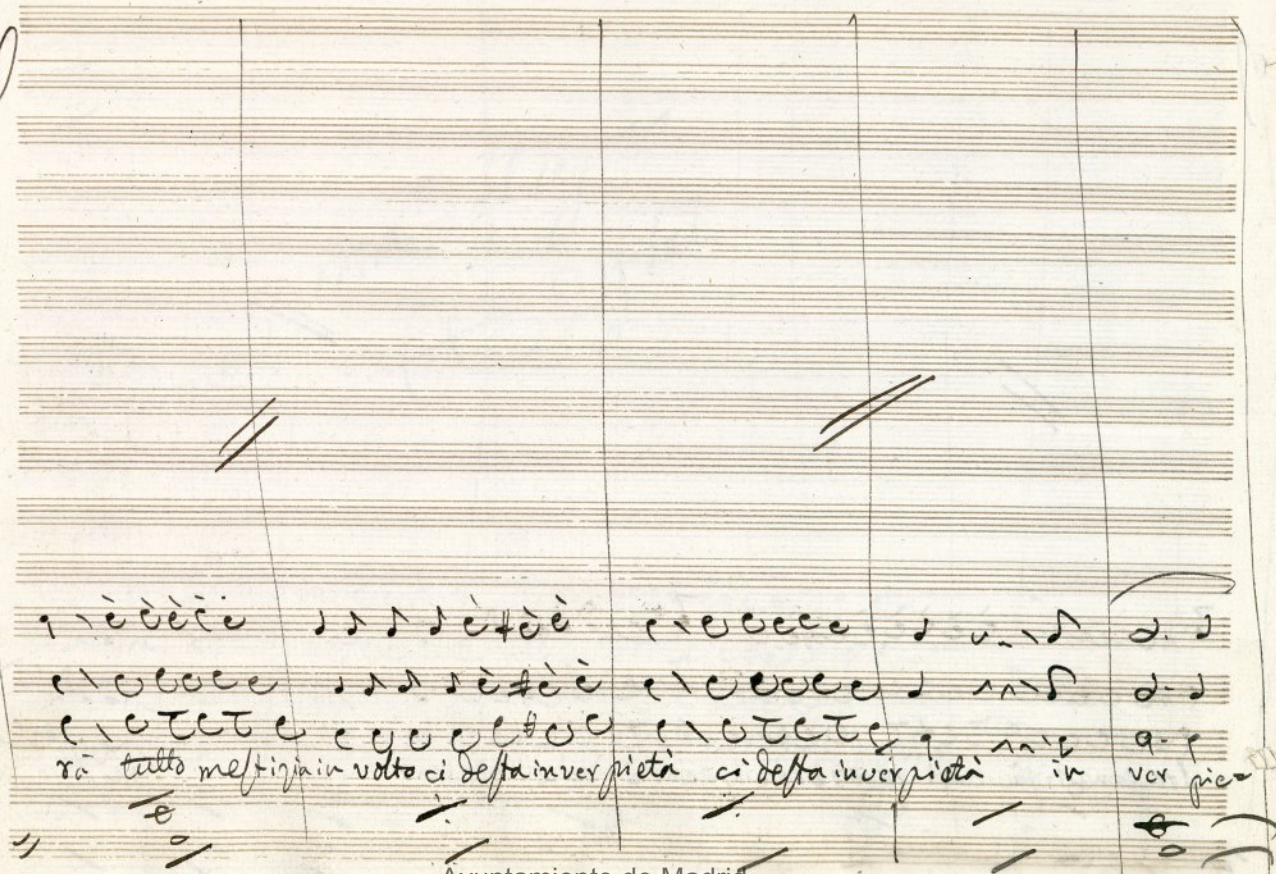 rà tutto mestizia in volto ci desta in ver pietà ci desta in ver pietà in ver pie=
Ayuntamiento de Madrid